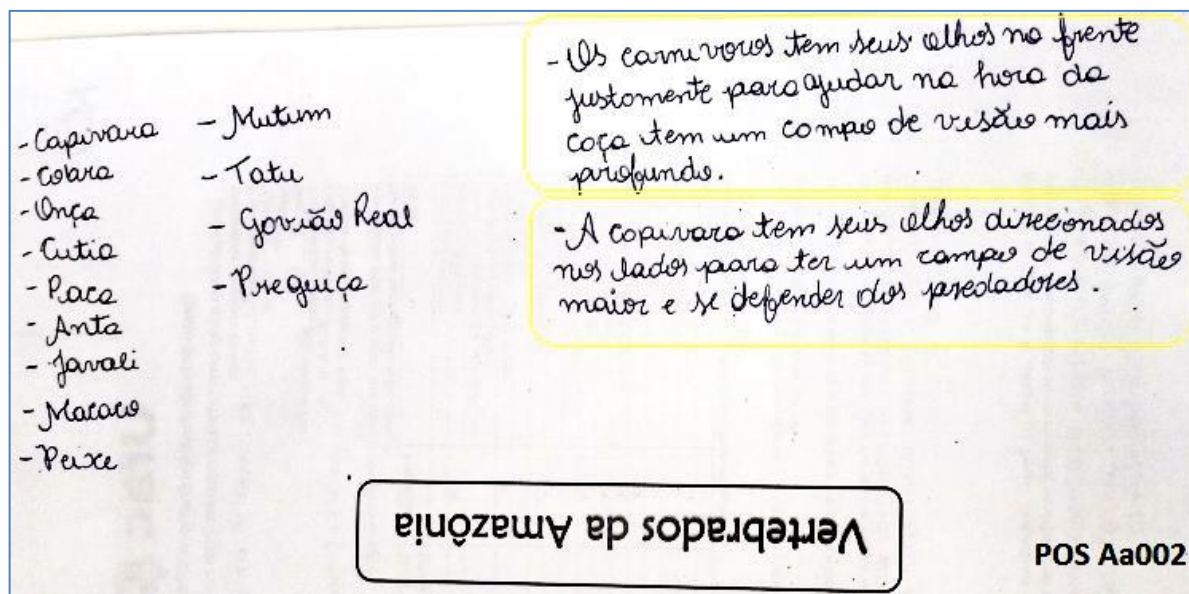 - Capivara
- Cobra
- Onça
- Cutia
- Paca
- Anta
- Javali
- Macaco
- Peixe
- Mutum
- Tatu
- Gavião Real
- Preguiça
- Os carnivoros tem seus olhos na frente
justamente para ajudar na hora da
caça tem um campo de visão mais
profundo.
- A capivara tem seus olhos direcionados
nos lados para ter um campo de visão
maior e se defender dos predadores.
Vertebrados da Amazônia
POS Aa002